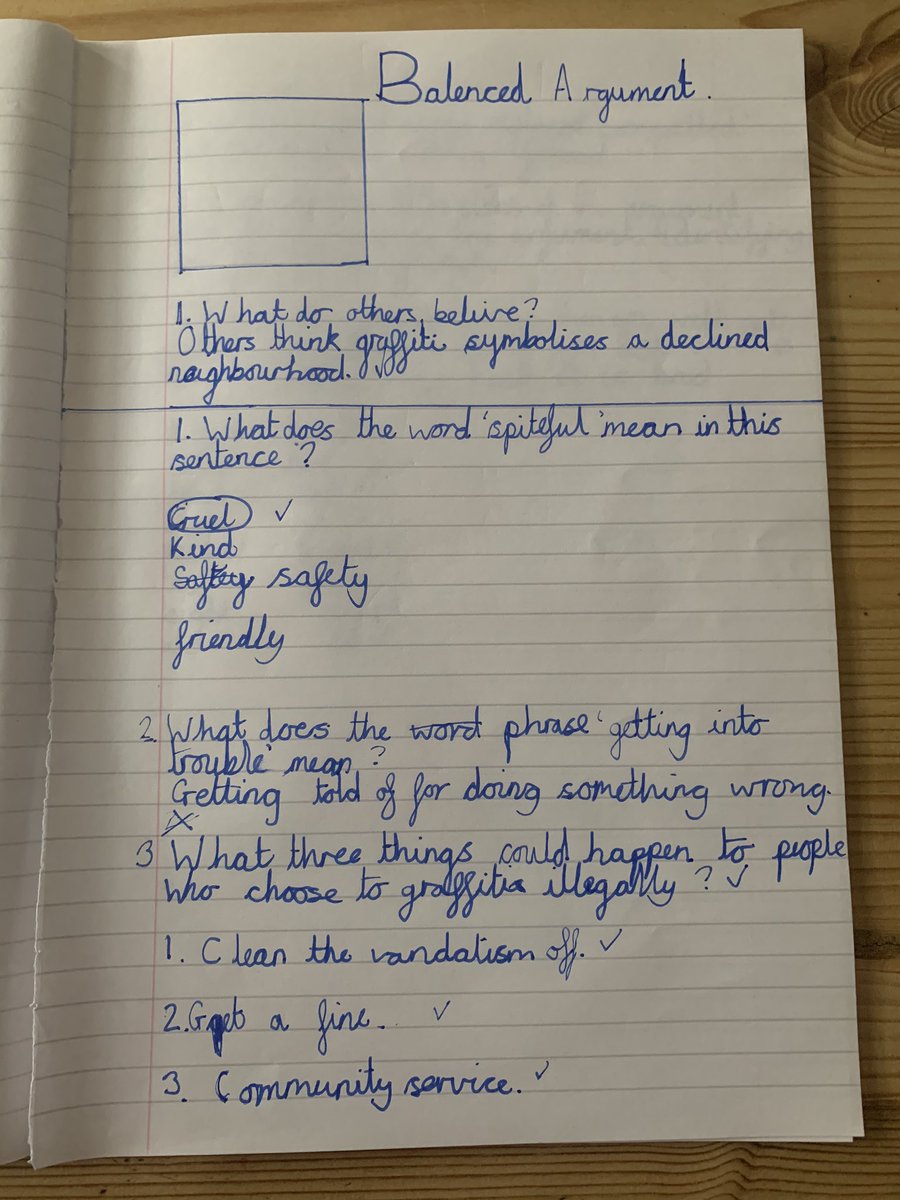 Balenced Argument.
1. What do others belive?
Others think graffiti symbolises a declined
neighbourhood. ✓
1. What does the word 'spiteful' mean in this
sentence'?
Cruel ✓
Kind
Saftey safety
friendly
2. What does the word phrase 'getting into
trouble' mean?
Getting told of for doing something wrong.
X
3 What three things could happen to people
who choose to graffitis illegally? ✓
1. Clean the vandalism off. ✓
2. Get a fine. ✓
3. Community service. ✓